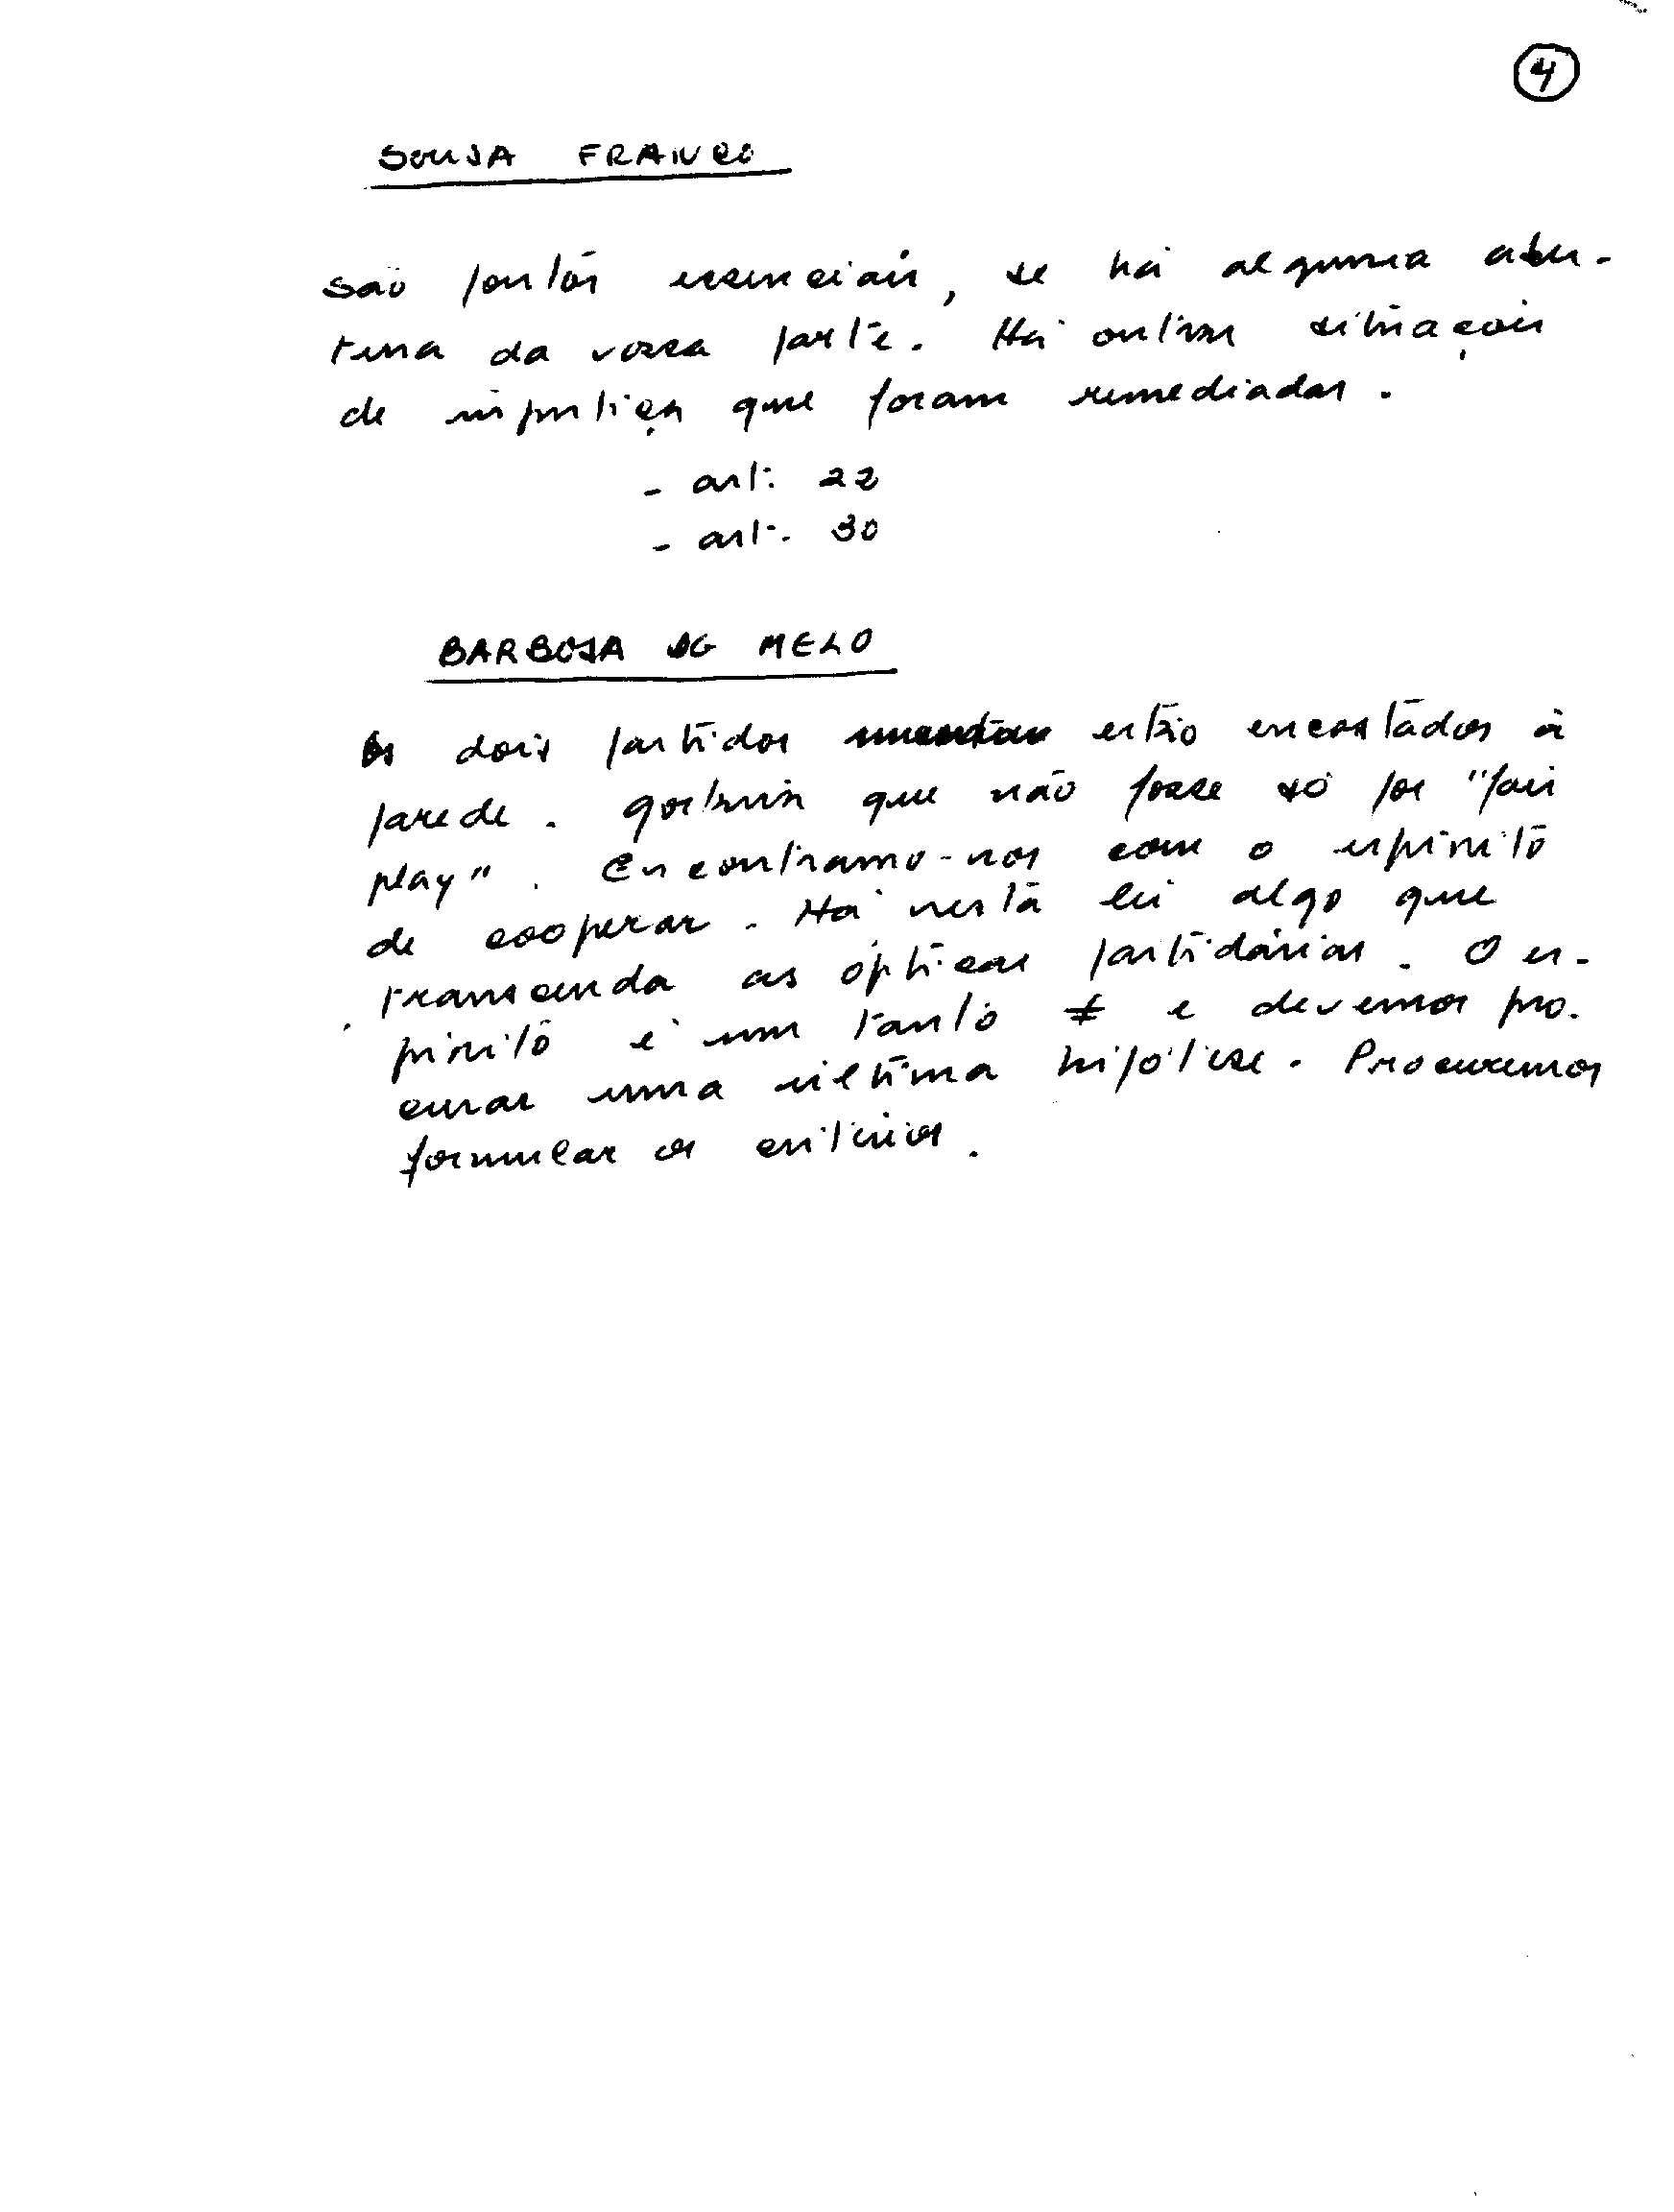 4
SOUSA FRANCO
São pontos essenciais, se há alguma aber-
tura da vossa parte. Há outras situações
de injustiça que foram remediadas.
- art. 22
- art. 30
BARBOSA DE MELO
Os dois partidos estão encostados à
parede. Gostaria que não fosse só por "fair
play". Encontramo-nos com o espírito
de cooperar. Há nesta lei algo que
transcenda as ópticas partidárias. O es-
pírito é um tanto ≠ e devemos pro-
curar uma última hipótese. Procuremos
formular os critérios.